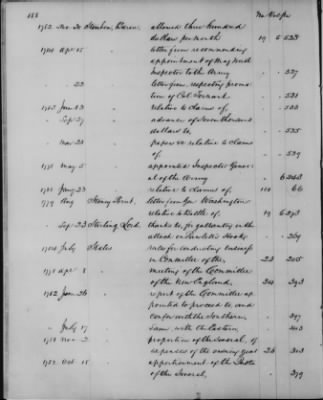 488
No Vol pa
1782 Nov 20 Steuben Baron allowed three hundred
dollars per month 19 5 523
1784 Apr 15 letter from recommending
appointment of Maj North
Inspector to the Army 527
" 22 letter from, respecting promo
tion of Col. 528
1783 Jan 23 relative to claims of, 533
" Sep 29 advance of seven thousand
dollars to, 535
" Nov 28 paper relative to claims
of, 539
1778 May 5 appointed Inspector Gener
al of the Army
1785 Jany 23 relative to claims of, 66
1779 Aug Stony Point. letter from Gen Washington
relative to battle of, 19 6
" Sep 23 Stirling Lord, thanks to, for gallantry in the
attack on Powles Hook 269
1784 July States rules for conducting business
in Committee of the, 23 205
1777 Apr 8 meeting of the Committee
of the New England, 293
1782 Jan 26 report of the Committee ap
pointed to proceed to, and
confer with the Southern, 397
" July 17 Same with the Eastern 403
1780 Nov 2 proportion of the Several, of
expenses of the ensuing year 26 303
1782 Oct 15 apportionment of the Quota
of the Several, 379